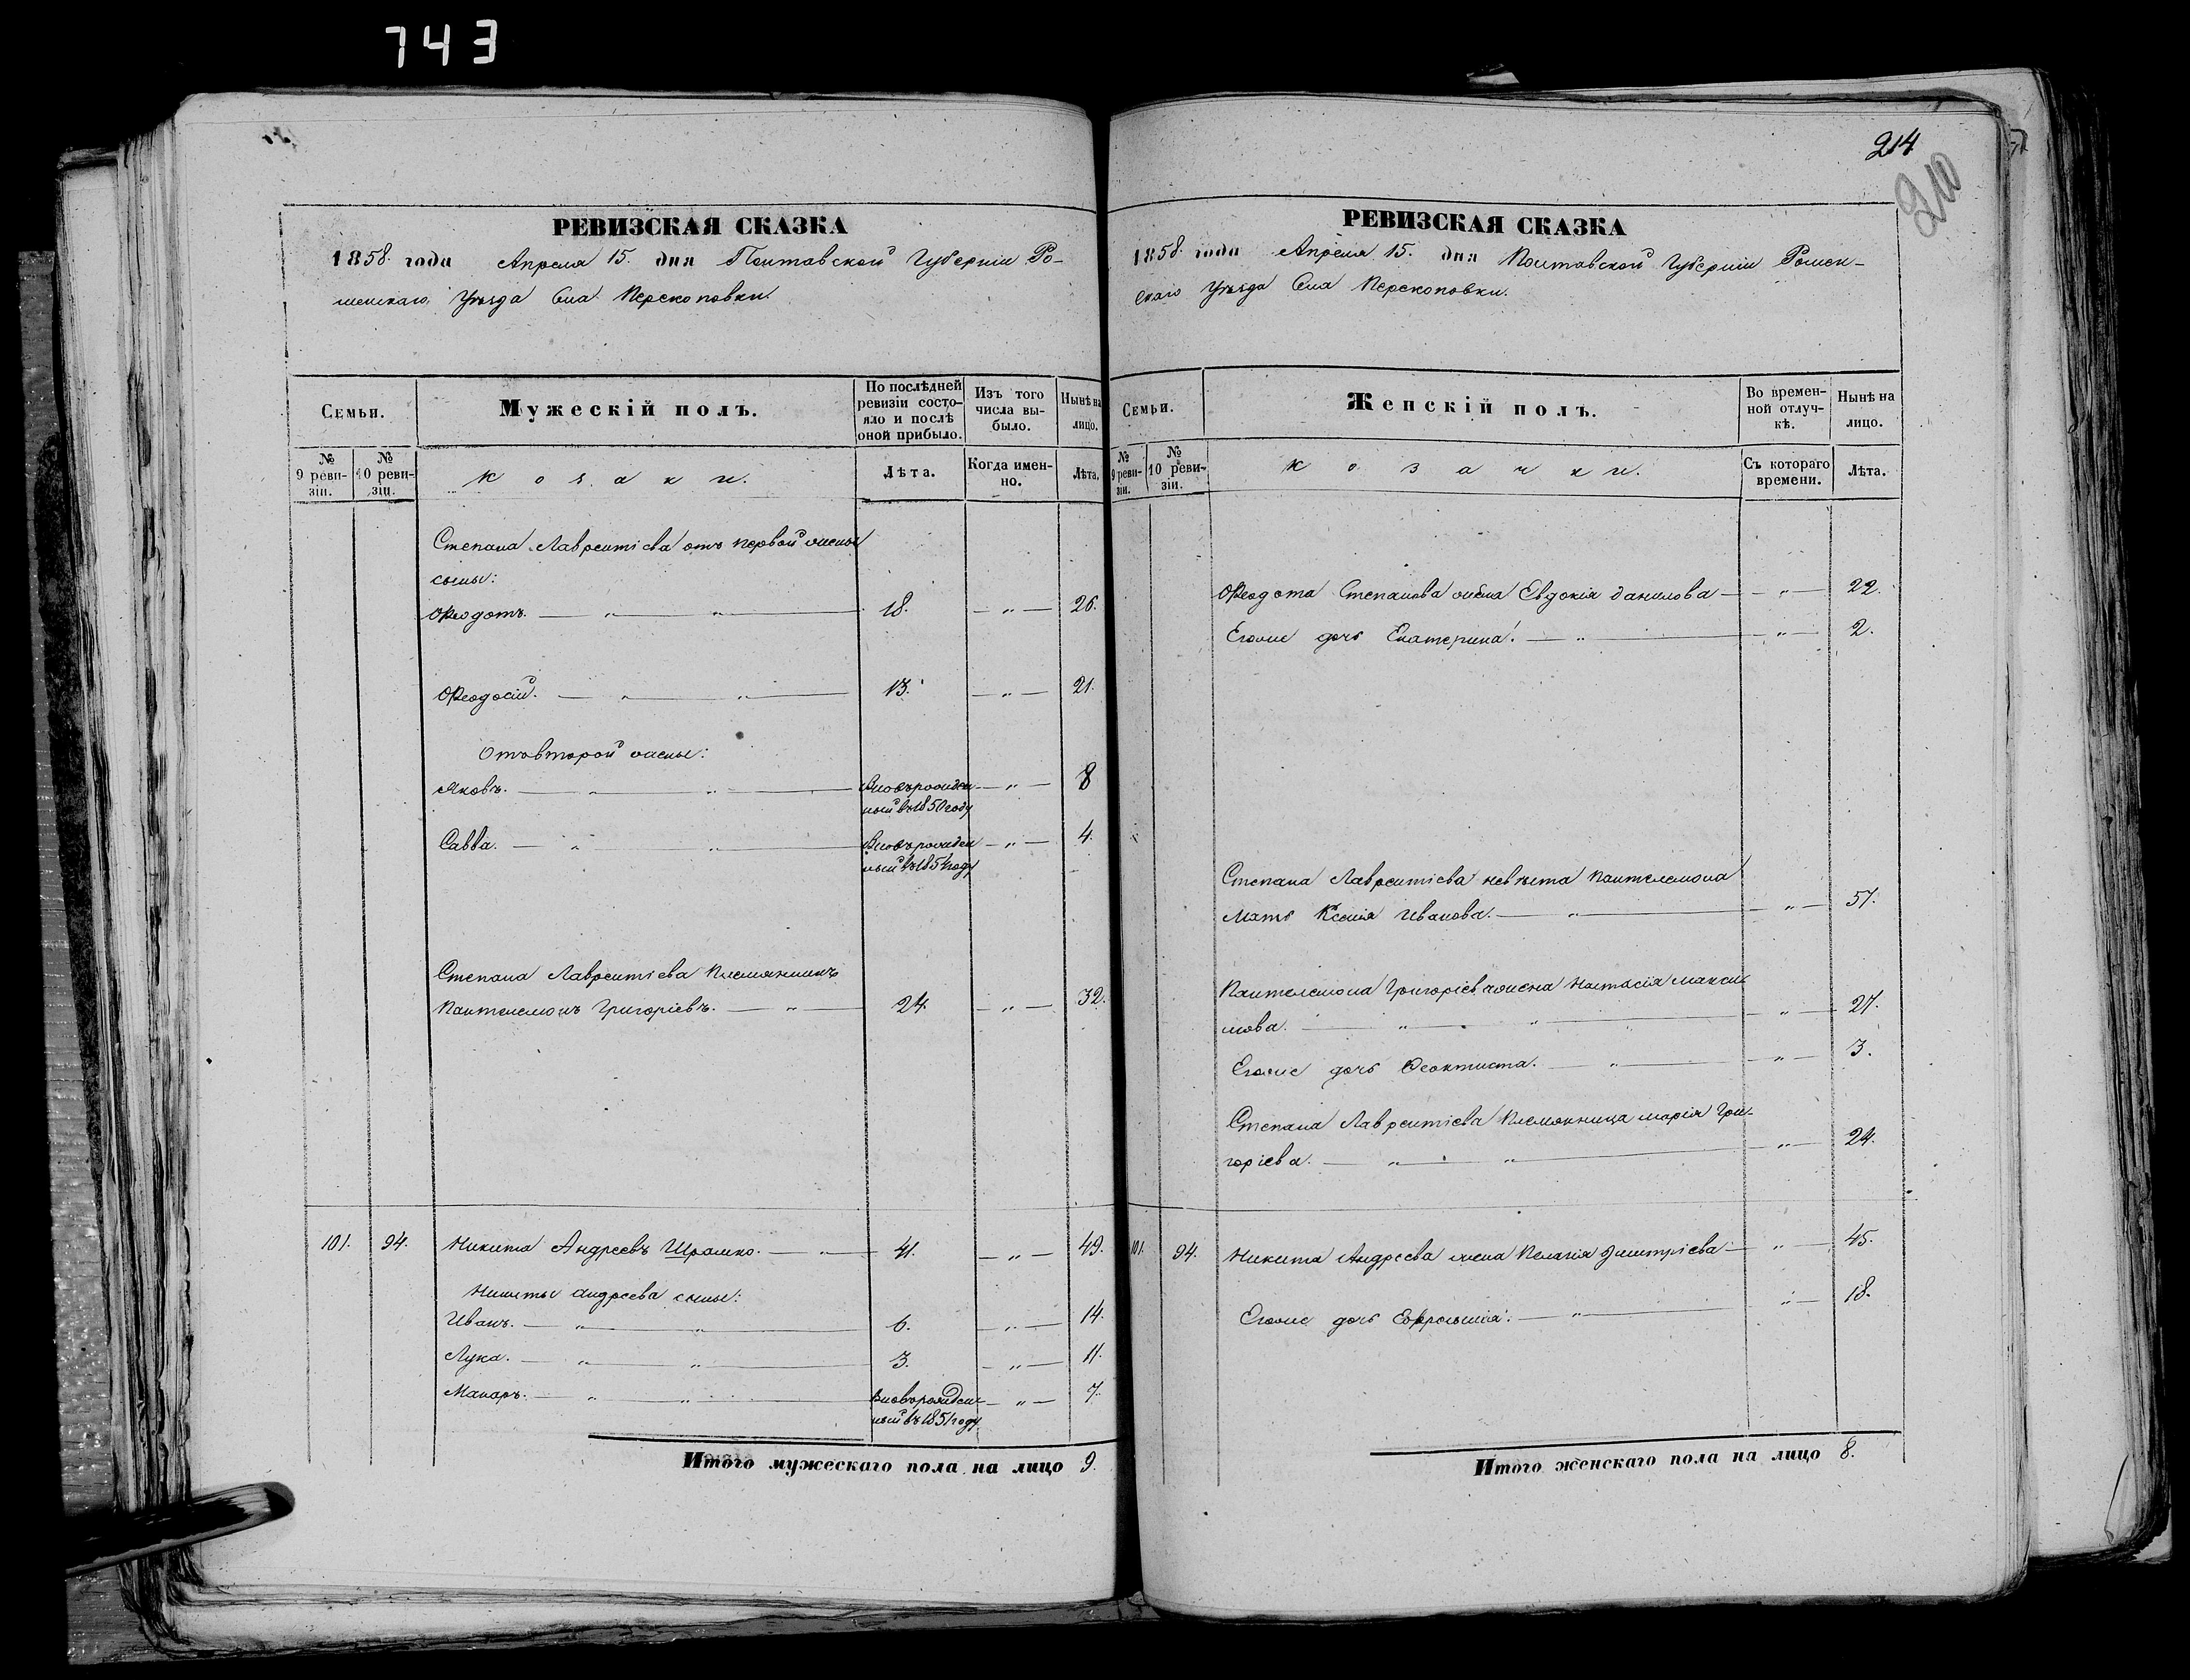 743
РЕВИЗСКАЯ СКАЗКА
1858 года Апреля 15. дня Полтавской Губернии Ро-
менскаго Уѣзда Села Перекоповки.
Семьи.
Мужескій полъ.
По послѣдней ревизіи состо-яло и послѣ оной прибыло.
Изъ того числа вы-было.
Нынѣ на лицо.
№ 9 реви-зіи.
№ 10 реви-зіи.
Козаки.
Лѣта.
Когда имен-но.
Лѣта.
Степана Лаврентіева отъ первой жены
сыны:
Ѳеодотъ. — " — " — 18. — " — 26.
Ѳеодосій. — " — " — 13. — " — 21.
Отъ второй жены:
Яковъ. — " — " — Вновьрожден- — " — 8
ный въ 1850 году
Савва. — " — " — Вновьрожден — " — 4.
ный въ 1854 году
Степана Лаврентіева Племянникъ
Пантелемонъ Григоріевъ. — " — 24. — " — 32.
101. 94. Никита Андреевъ Шрамко. — " — 41. — " — 49.
Никиты Андреева сыны:
Иванъ. — " — " — 6. — " — 14.
Лука. — " — " — 3. — " — 11.
Макаръ. — " — " — Вновьрожден — " — 7.
ный въ 1851 году
Итого мужескаго пола на лицо 9.
214
210
РЕВИЗСКАЯ СКАЗКА
1858 года Апреля 15. дня Полтавской Губерніи Ромен-
скаго Уѣзда Села Перекоповки.
Семьи.
Женскій полъ.
Во времен-ной отлуч-кѣ.
Нынѣ на лицо.
№ 9 реви-зіи.
№ 10 реви-зіи.
Козачки.
Съ котораго времени.
Лѣта.
Ѳеодота Степанова жена Евдокія Данилова — " — 22.
Егоже дочь Екатерина. — " — " — 2.
Степана Лаврентіева невѣста Пантелемона
Мать Ксенія Иванова. — " — " — 57.
Пантелемона Григоріева жена Настасія Макси-
мова. — " — " — " — 27.
Егоже дочь Феоктиста. — " — " — 3.
Степана Лаврентіева Племянница Марія Гри-
горіева. — " — " — " — 24.
101. 94. Никита Андреева жена Пелагія Дмитріева — " — 45.
Егоже дочь Евфросинія. — " — " — 18.
Итого женскаго пола на лицо 8.